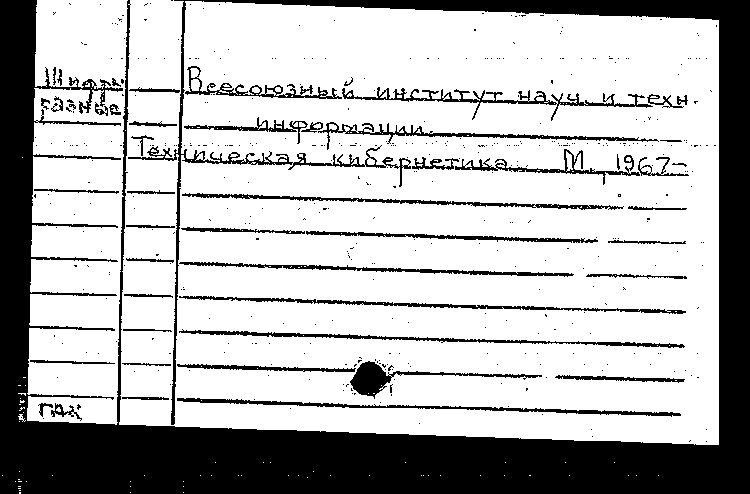 Шифры
разные
Всесоюзный институт науч. и техн.
информации.
Техническая кибернетика. М., 1967-
ГАК